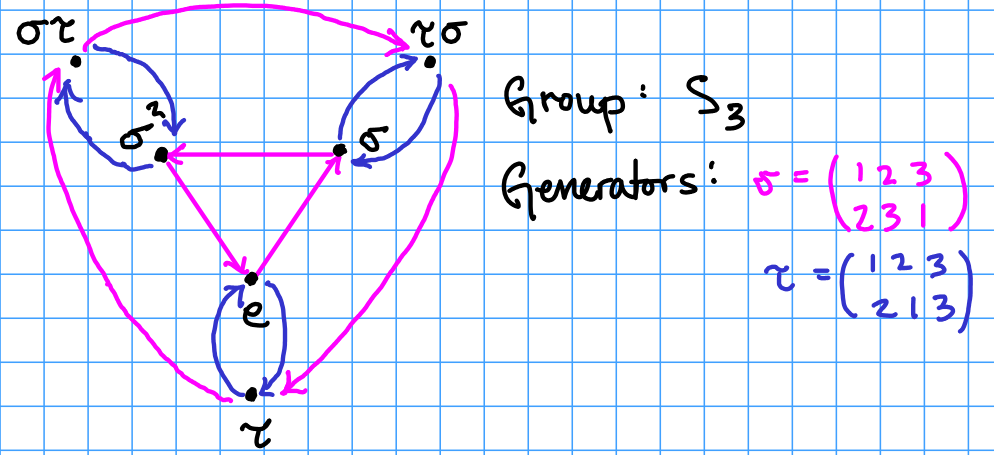 στ
τσ
σ²
σ
e
τ
Group: S₃
Generators: σ = (1 2 3
2 3 1)
τ = (1 2 3
2 1 3)